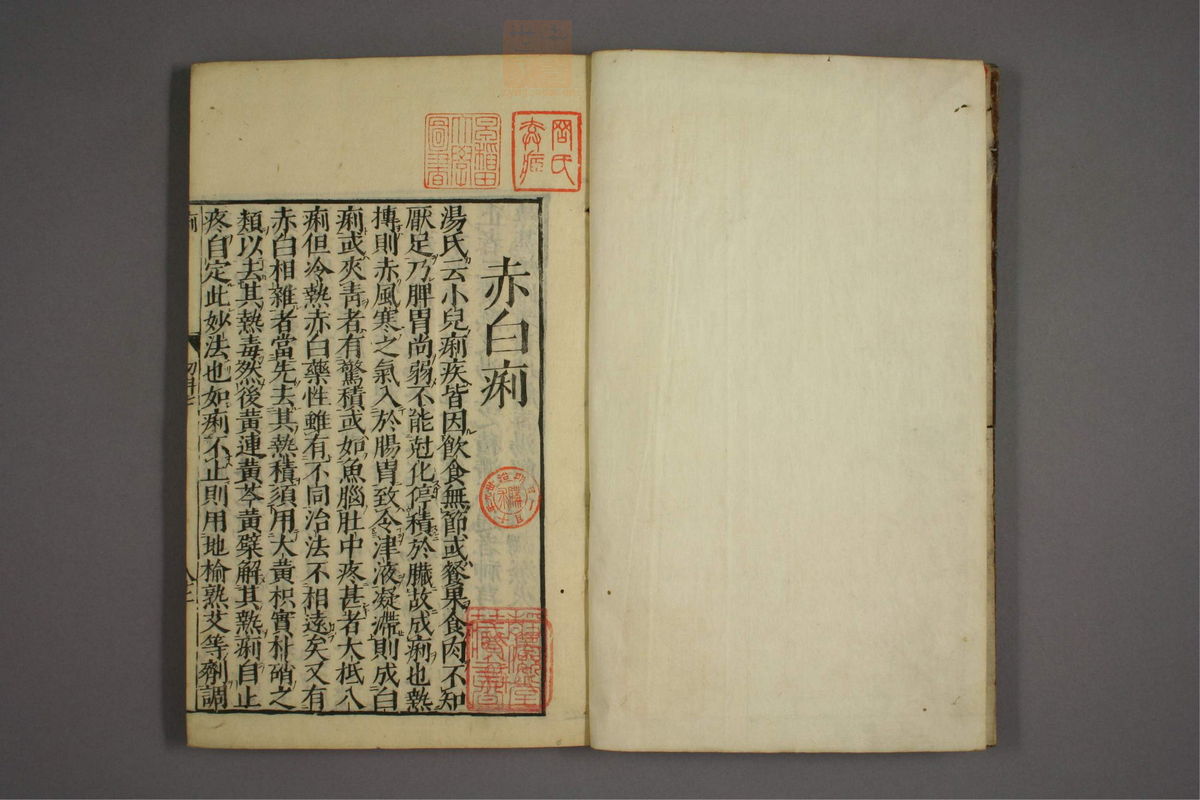 赤白痢
湯氏云小兒痢疾皆因飲食無節或餐果食肉不知
厭足乃脾胃尚弱不能尅化停積於臟故成痢也熱
摶則赤風寒之氣入於腸胃致令津液凝滯則成白
痢或夾靑者有驚積或如魚腦肚中疼甚者大柢八
痢但冷熱赤白藥性雖有不同治法不相遠矣又有
赤白相雜者當先去其熱積須用大黃枳實朴硝之
類以去其熱毒然後黃連黃芩黃蘗解其熱痢自止
疼自定此妙法也如痢不止則用地榆熟艾等劑調
早稻田
大學
圖書